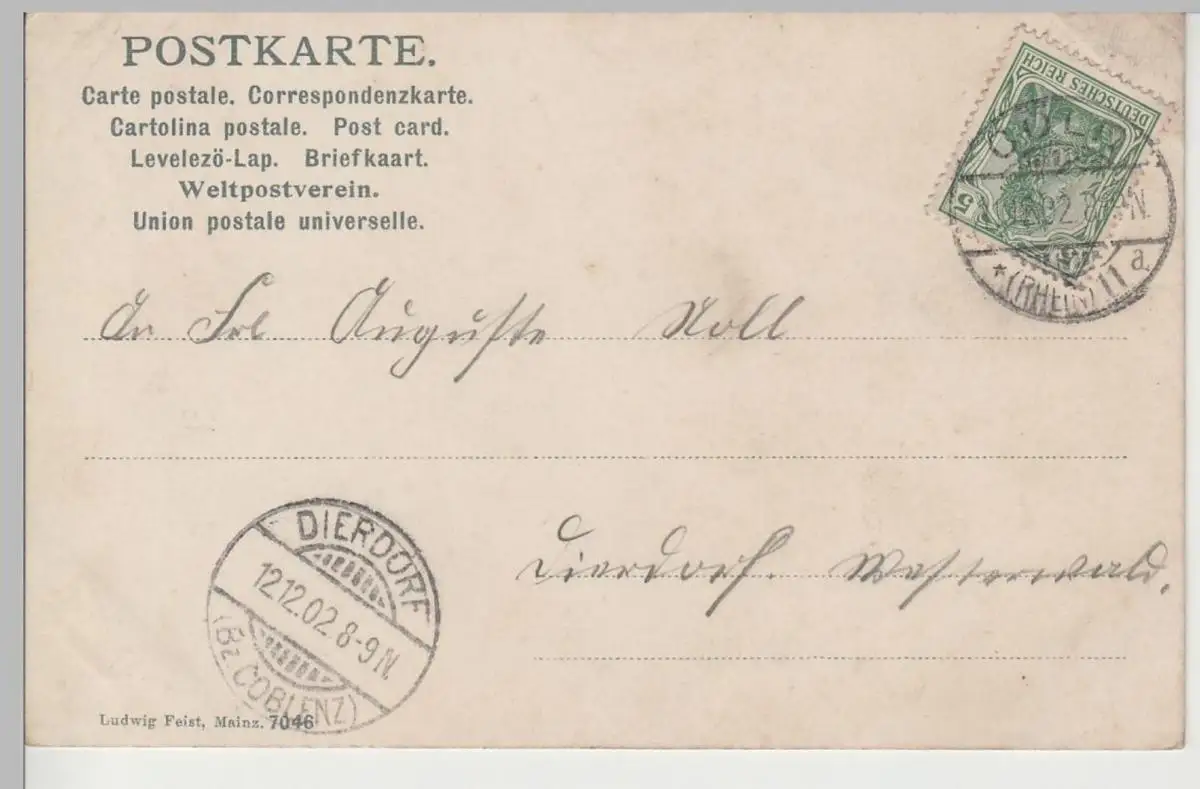 POSTKARTE.
Carte postale. Correspondenzkarte.
Cartolina postale. Post card.
Levelezö-Lap. Briefkaart.
Weltpostverein.
Union postale universelle.
DEUTSCHES REICH
5
CÖLN
*(RHEIN) 1 a.
An Frl Auguste Noll
Dierdorf. Westerwald.
DIERDORF
12.12.02.8-9N.
(Bz. COBLENZ)
Ludwig Feist, Mainz. 7046